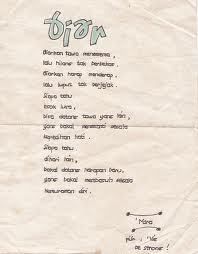 Bjar
Biarkan tawa menggema,
lalu hilang tak berbekas.
Biarkan harap menderap,
lalu luput tak berjejak.
Siapa tahu
esok lusa,
bisa datang tawa yang lain,
yang bakal segala
hari.
Siapa tahu
dihari lain,
bakal datang harapan baru,
yang bakal membasuh segala
kemuraman diri.
'Mira
be strong!